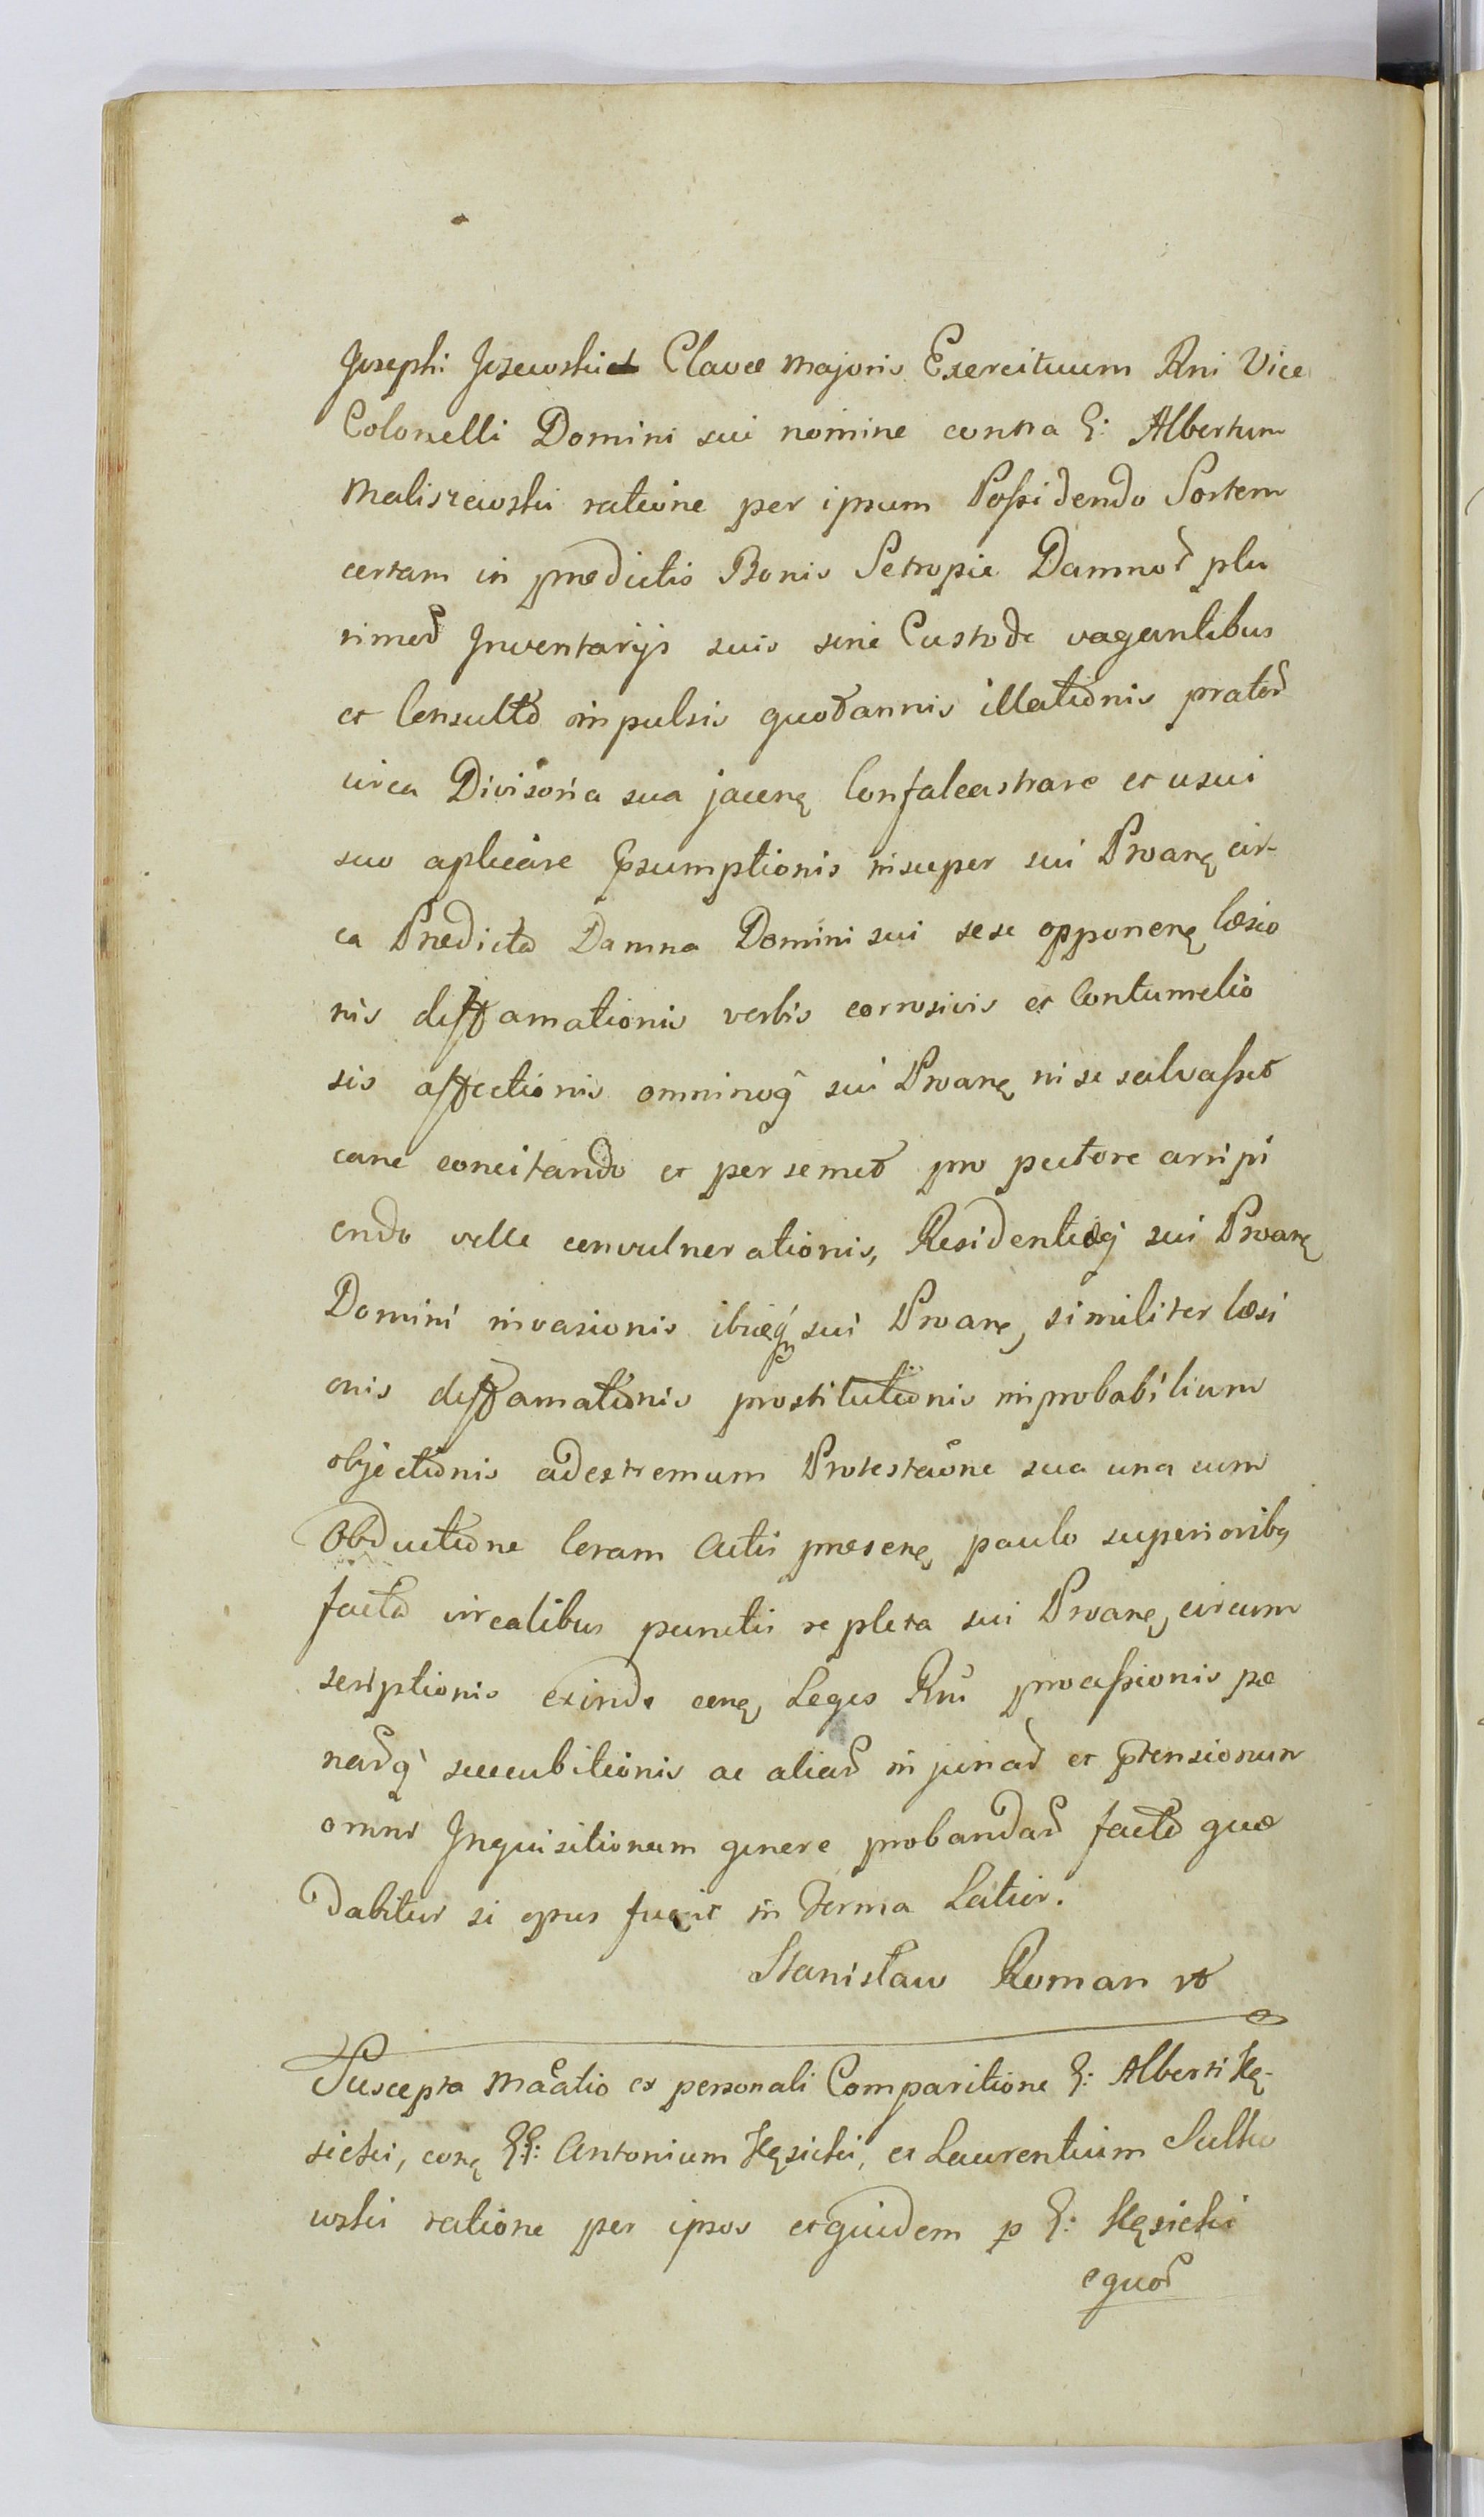 Josephi Jezewski et Clavæ Majoris Exercituum Rni Vice
Colonelli Domini sui nomine contra G: Albertum
Maliszewski ratione per ipsum Possidendo Sortem
certam in prædictis Bonis Petropie Damnor plu
rimor Inventarijs suis sine Custode vagantibus
et Consulto impulsis quotannis illationis prator
circa Divisoria sua jacen Confaleastrare et usui
suo aplicare Psumptionis insuper sui Proan cir-
ca Prædicta Damna Domini sui sese opponen læsio
nis diffamationis verbis corrosivis et Contumelio
sis affectionis omninoq sui Proan ni se salvasset
cane concitando et per semet pro pectore arripi
endo velle convulnerationis, Residentiæq sui Proan
Domini invasionis ibiq sui Proan, similiter læsi
onis diffamationis prostitutionis improbabilium
objectionis ad extremum Protestaone sua una cum
Obductione Coram Actis præsen paulo superioribq
facta irrealibus punctis repleta sui Proan, circum
scriptionis exinde cen, Leges Rni processionis pæ
narq succubitionis ac aliar injuriar et Ptensionum
omni Inquisitionum genere probandar facta quæ
dabitur si opus fuerit in forma Latior.
Stanisław Roman
Suscepta Maatio ex personali Comparitione G: Alberti Kę-
sicki, con GG: Antonium Kęsicki, et Laurentium Sulko
wski ratione per ipsos et quidem p G: Kęsicki
equor